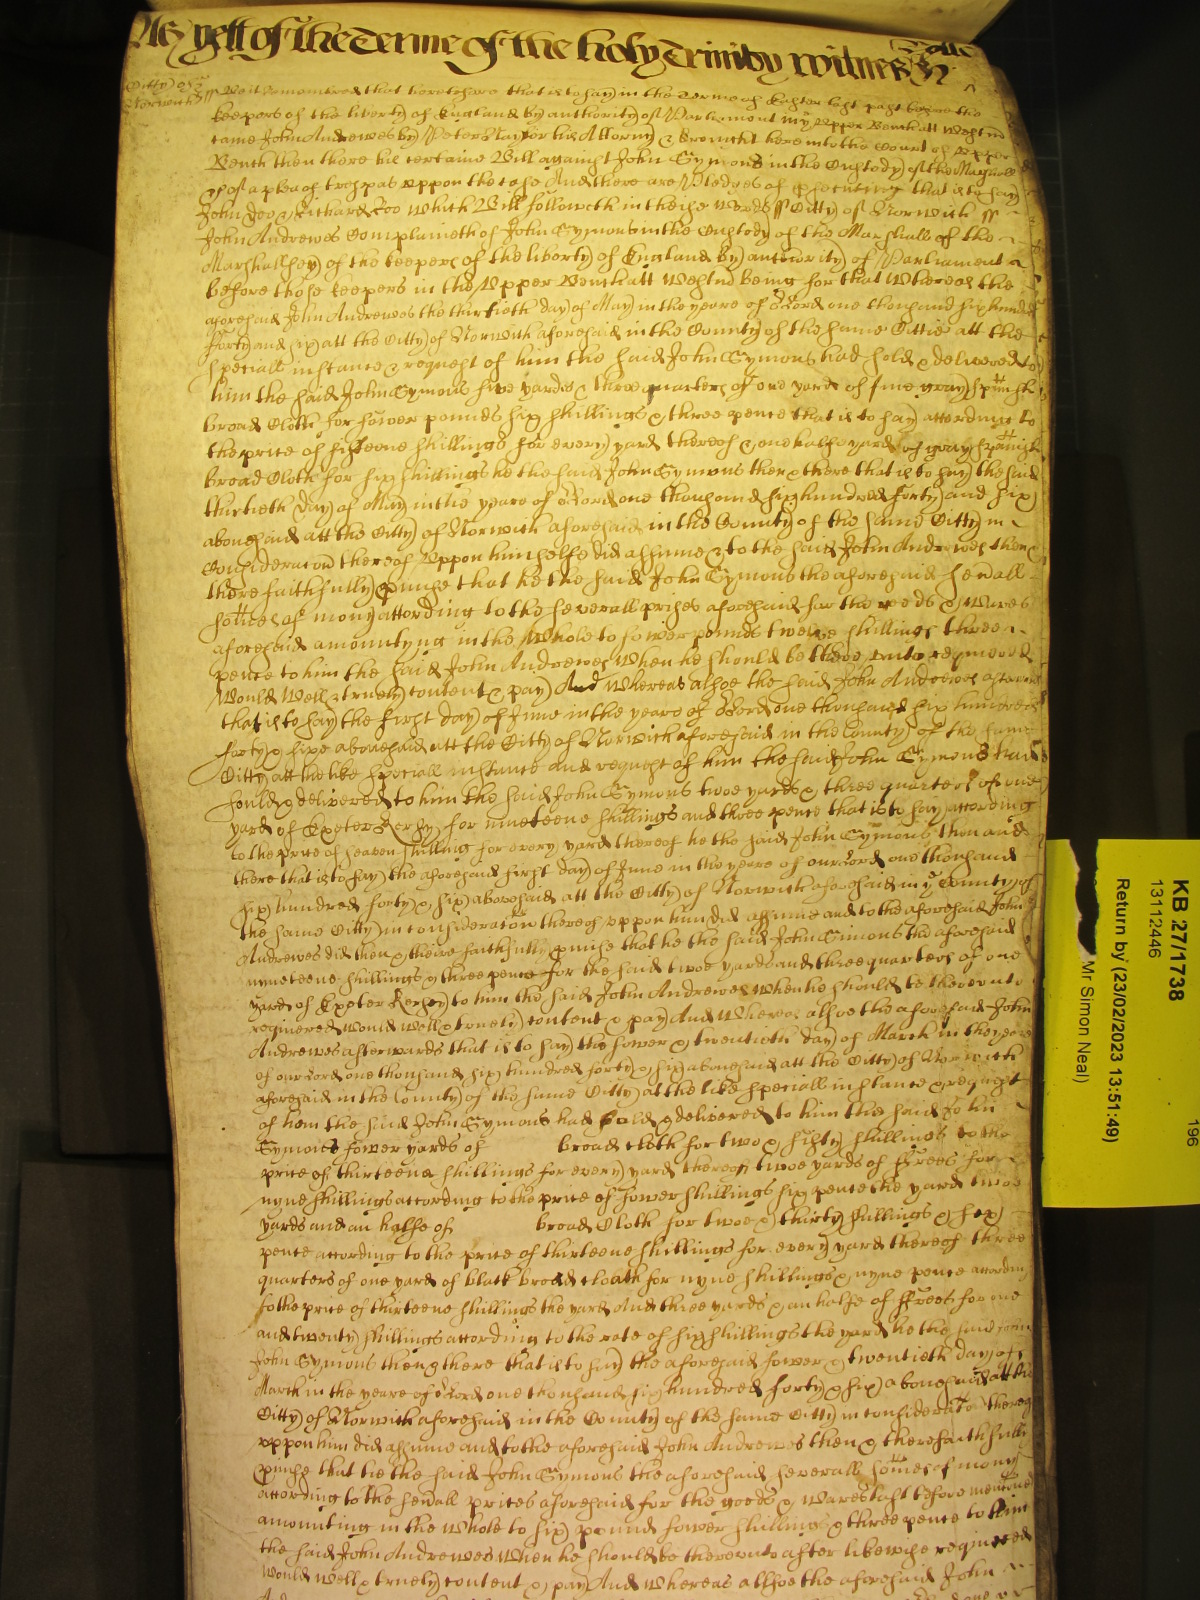 As yett of the Terme of the holy Trinity witnes
Citty of
Norwich ss Be it remembred that heretofore that is to say in the Terme of Easter last past before the
keepers of the liberty of England by authority of Parliament in ye upper Bench att Westm
came John Andrewes by Peter Ray for his Attorny & brought here into the Court of upper
Bench then there his certaine Bill against John Symons in the Custody of the Marshall
&c of a plea of trespas uppon the case And there are Pledges of prosecuting that is to say
John Doo & Richard Roo which Bill followeth in theise words ss Citty of Norwich ss
John Andrewes Complaineth of John Symons in the Custody of the Marshall of the
Marshallsey of the keepers of the liberty of England by authority of Parliament
before those keepers in the Upper Bench att Westm being for that Whereas the
aforesaid John Andrewes the thirtieth day of May in the yeare of or Lord one thousand six hundred
forty and six att the Citty of Norwich aforesaid in the County of the same Cittie att the
speciall instance & request of him the said John Symons had sold & delivered to
him the said John Symons five yards & three quarters of one yard of fine gray spanish
broad Cloth for fower pounds six shillings & three pence that is to say according to
the price of fifteene shillings for every yard thereof & one halfe yard of gray spanish
broad Cloth for six shillings he the said John Symons then & there that is to say the said
thirtieth day of May in the yeare of or Lord one thousand six hundred forty and six
abovesaid att the Citty of Norwich aforesaid in the County of the same Citty in
Consideracon thereof Uppon himselfe did assume & to the said John Andrewes then &
there faithfully pmise that he the said John Symons the aforesaid sevall
somes of mony according to the severall prises aforesaid for the goods & wares
aforesaid amountyng in the Whole to fower pounds twelve shillings three
pence to him the said John Andrewes When he should be there unto required
Would Well & truely content & pay And Whereas alsoe the said John Andrewes afterwards
that is to say the first day of June in the yeare of or Lord one thousand six hundred
forty & sixe abovesaid att the Citty of Norwich aforesaid in the County of the same
Citty att the like speciall instance and request of him the said John Symons had
sould & delivered to him the said John Symons twoe yards & three quarters of one
yard of Exeter Kersey for nineteene shillings and three pence that is to say according
to the price of seaven shilling for every yard thereof he the said John Symons then and
there that is to say the aforesaid first day of June in the yeare of our Lord one thousand
six hundred forty & six abovesaid att the Citty of Norwich aforesaid in ye County of
the same Citty in consideracon thereof uppon him did assume and to the aforesaid John
Andrewes did then & there faithfully pmise that he the said John Simons the aforesaid
nyneteene shillings & three pence for the said twoe yards and three quarters of one
yard of Exeter Kersey to him the said John Andrewes when he should be thereunto
required would well & truely content & pay And Whereas allsoe the aforesaid John
Andrewes afterwards that is to say the fower & twentieth day of March in the yeare
of our Lord one thousand six hundred forty & six abovesaid att the Citty of Norwich
aforesaid in the County of the same Citty at the like speciall instance & request
of him the said John Symons had sold & delivered to him the said John
Symons fower yards of broad cloth for two & fifty shillings to the
price of thirteene shillings for every yard thereof twoe yards of ffrees for
nyne shillings according to the price of fower shillings six pence the yard twoe
yards and an halfe of broad Cloth for twoe & thirty shillings & six
pence according to the price of thirteene shillings for every yard thereof three
quarters of one yard of black broad cloath for nyne shillings & nyne pence according
to the price of thirteene shillings the yard And three yards & an halfe of ffrees for one
and twenty shillings according to the rate of six shillings the yard he the said John
John Symons then & there that is to say the aforesaid fower & twentieth day of
March in the yeare of or Lord one thousand six hundred forty & six abovesaid att the
Citty of Norwich aforesaid in the County of the same Citty in consideracon thereof
uppon him did assume and to the aforesaid John Andrewes then & there faithfully
pmise that he the said John Symons the aforesaid severall somes of mony
according to the sevall prices aforesaid for the goods & wares last before mencioned
amounting in the whole to six pound fower shillings & three pence to him
the said John Andrewes When he should be thereunto after likewise required
would well & truely content & pay And whereas allsoe the aforesaid John
KB 27/1738
13112446
Return by (23/02/2023 13:51:49)
Mr Simon Neal)
196